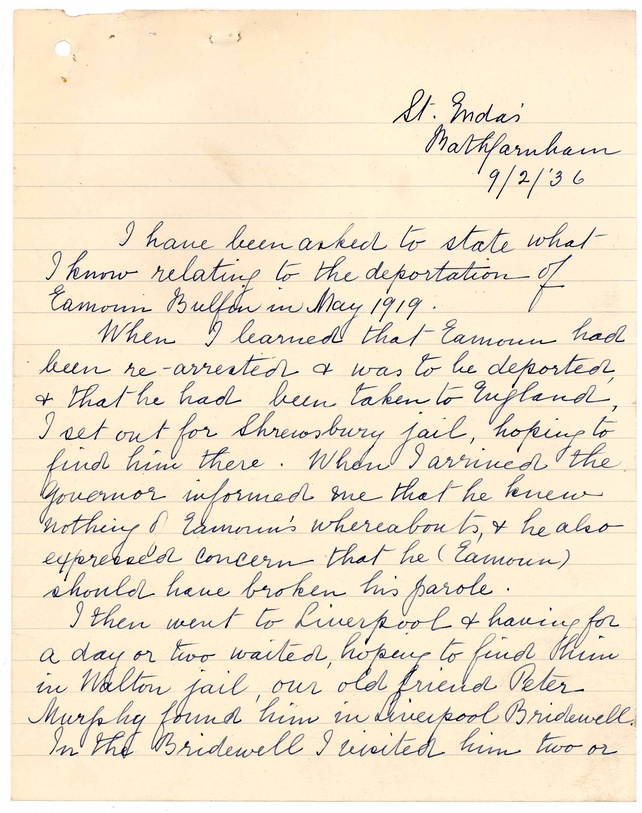 St. Enda's
Rathfarnham
9/2/'36
I have been asked to state what
I know relating to the deportation of
Eamonn Bulfin in May 1919.
When I learned that Eamonn had
been re-arrested & was to be deported,
& that he had been taken to England,
I set out for Shrewsbury jail, hoping to
find him there. When I arrived the
Governor informed me that he knew
nothing of Eamonn's whereabouts, & he also
expressed concern that he (Eamonn)
should have broken his parole.
I then went to Liverpool & having for
a day or two waited, hoping to find him
in Walton jail, our old friend Peter
Murphy found him in Liverpool Bridewell.
In the Bridewell I visited him two or